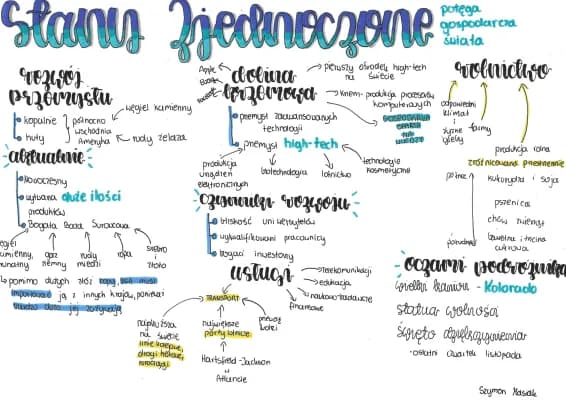 Stany Zjednoczone
potęga
gospodarcza
świata
rozwój
przemysłu
kopalnie
huty
północno
wschodnia
Ameryka
węgiel kamienny
rudy żelaza
aktualnie
nowoczesny
wytwarza duże ilości
produktów
Bogata Baza Surowcowa
węgiel
kamienny,
brunatny
gaz
ziemny
rudy
miedzi
ropa
srebro
i
złoto
pomimo dużych złóż ropy, USA musi
importować ją z innych krajów, ponieważ
dolina
krzemowa
Apple
pierwszy ośrodek high-tech
na świecie
krzem - produkcja procesorów
komputerowych
gospodarka
oparta
na
wiedzy
przemysł zaawansowanych
technologii
przemysł high-tech
produkcja
urządzeń
elektronicznych
biotechnologia
lotnictwo
technologie
kosmetyczne
czynniki rozwoju
bliskość uniwersytetów
wykwalifikowani pracownicy
bogaci inwestorzy
usługi
telekomunikacji
edukacja
naukowo-badawcze
finansowe
TRANSPORT
najdłuższa
na świecie
linie kolejowe,
drogi kołowe,
rurociągi
największe
porty lotnicze
przewóz
kolei
Hartsfield-Jackson
w
Atlancie
rolnictwo
odpowiedni
klimat
i
żyzne
gleby
farmy
produkcja rolna
zróżnicowana przestrzennie
północ
kukurydza i soja
pszenica
chów zwierząt
południe
bawełna i trzcina
cukrowa
oczami podróżnika
Wielki Kanion - Kolorado
statua wolności
święto dziękczynienia
-ostatni czwartek listopada
Szymon